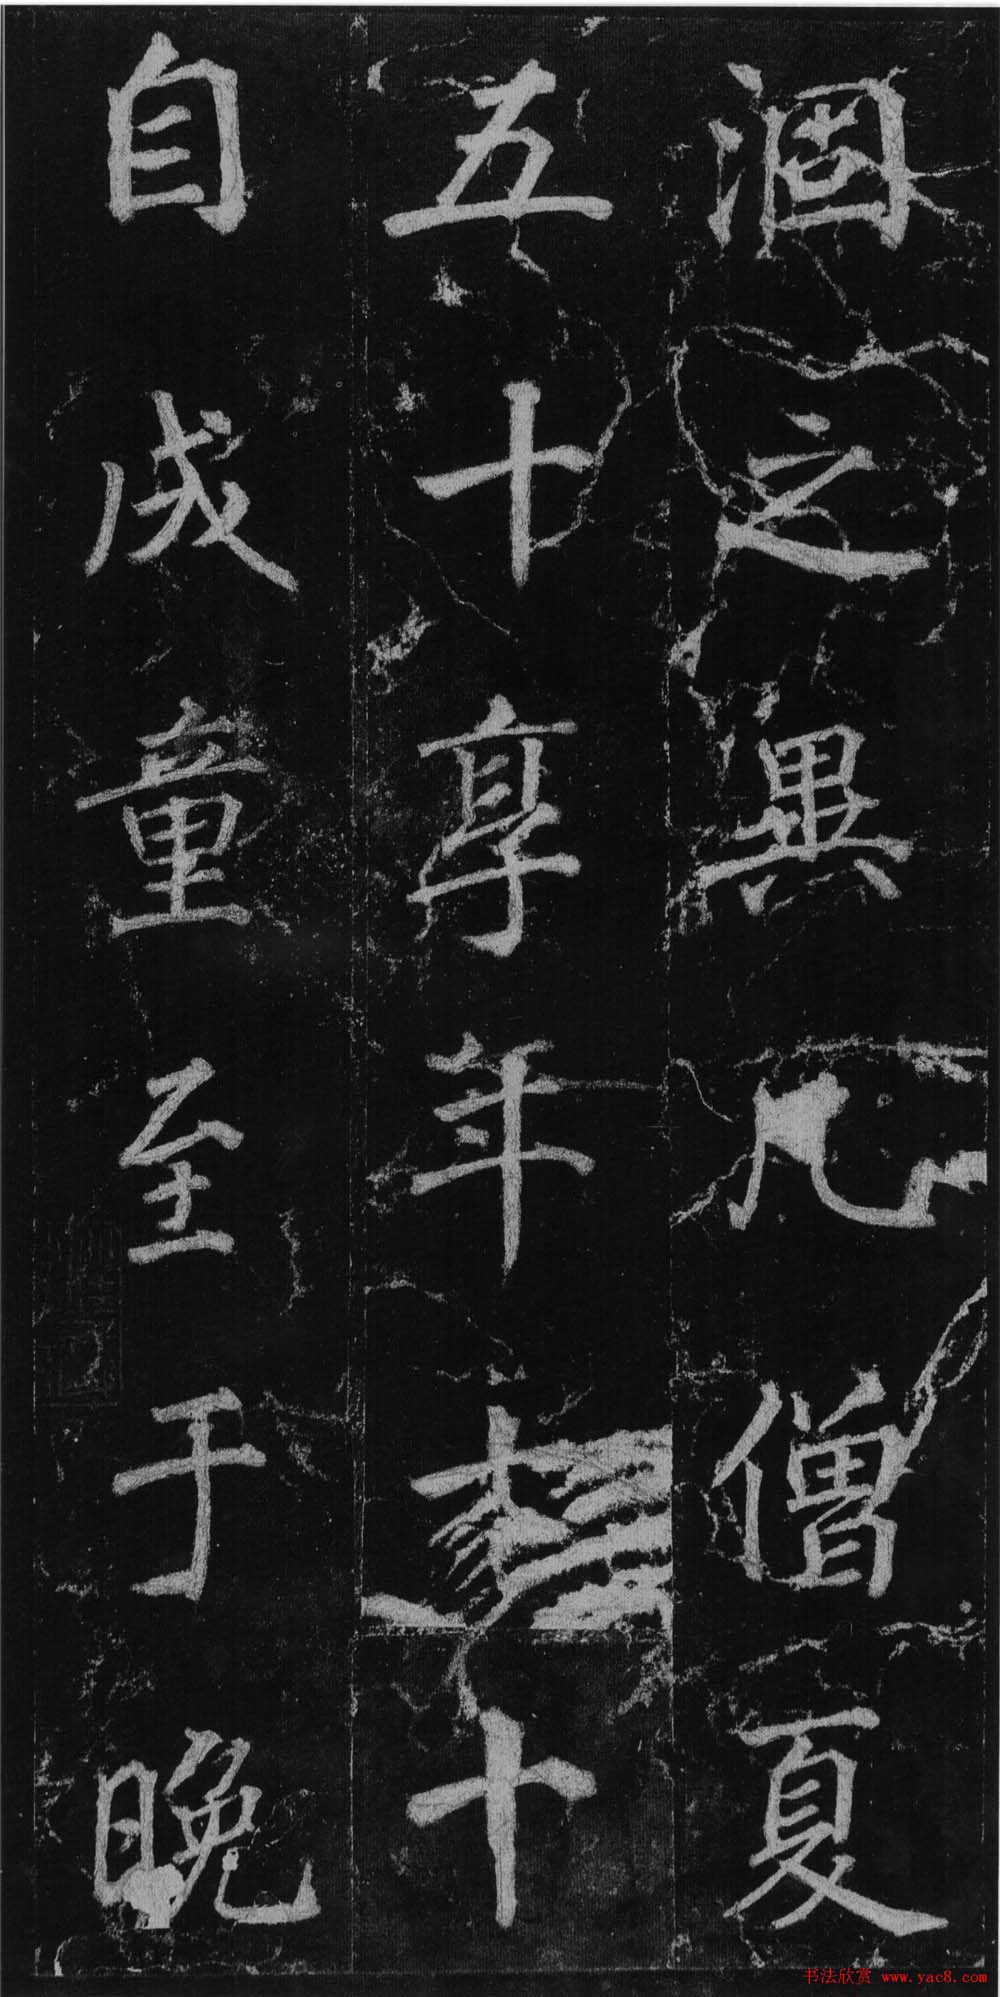 涸之異凡僧夏
五十享年七十
自成童至于晚
书法欣赏 www.yac8.com